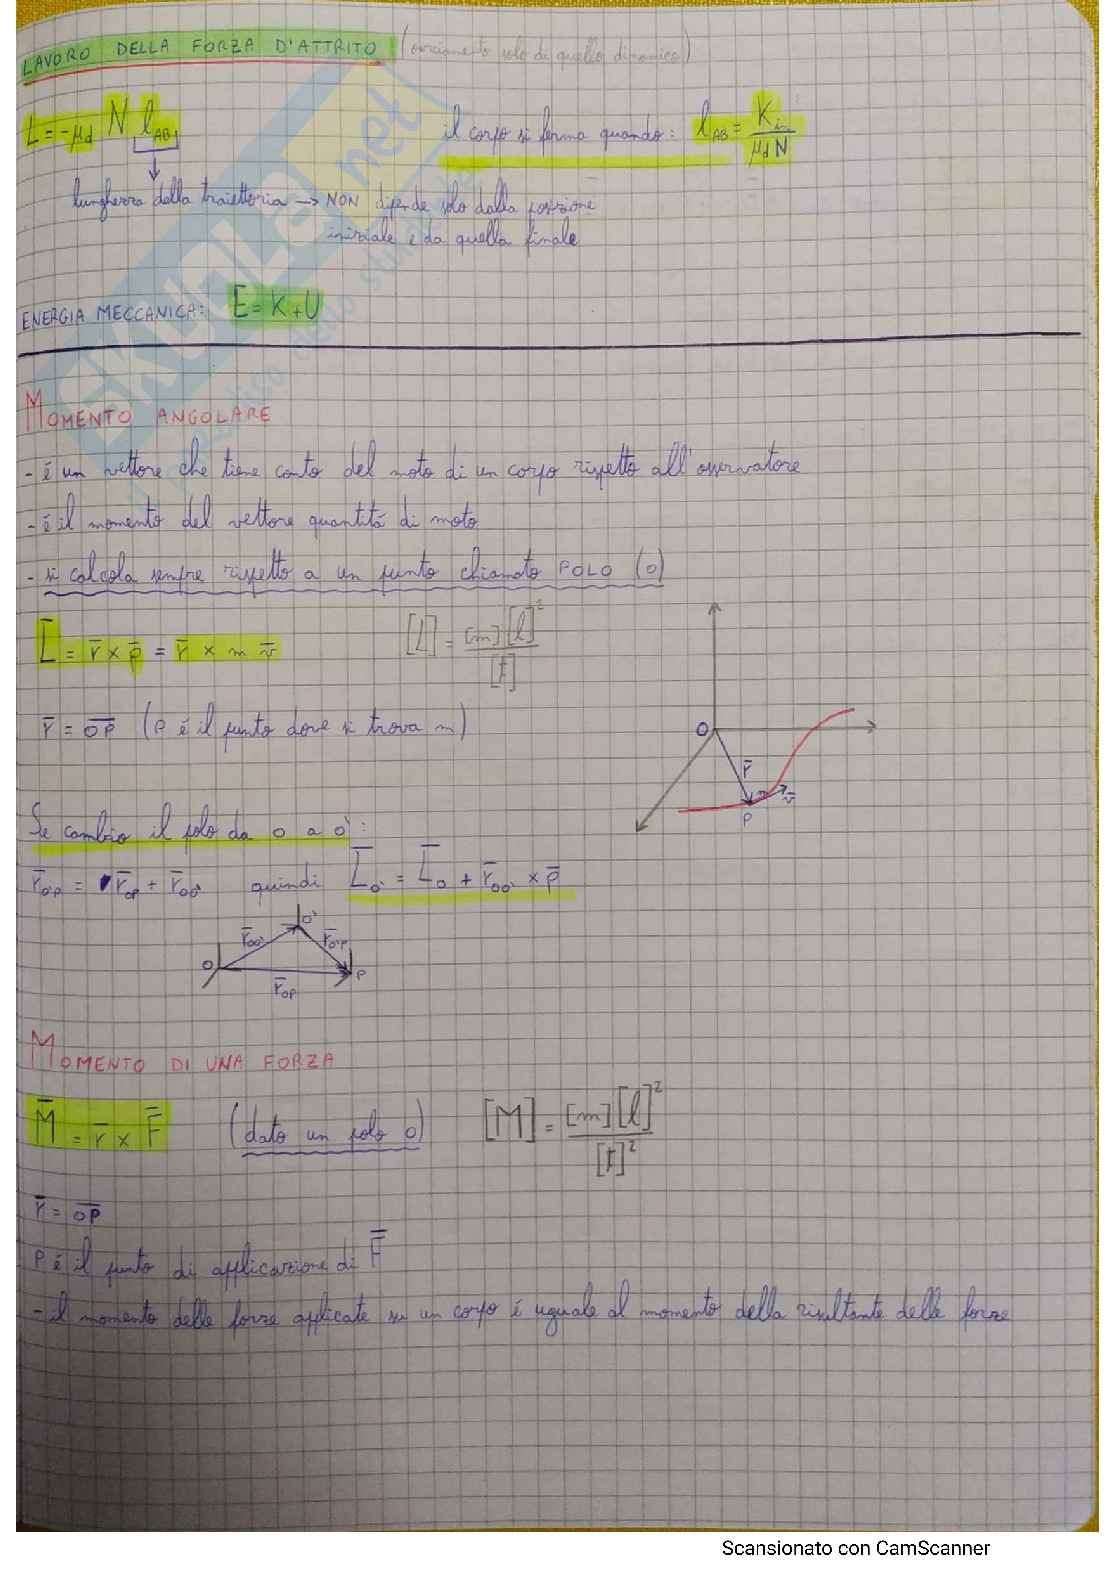 LAVORO DELLA FORZA D'ATTRITO (ovviamente solo di quello dinamico)
L = -μd N lAB
il corpo si ferma quando: lAB = Kin / μd N
lunghezza della traiettoria → NON dipende solo dalla posizione
iniziale e da quella finale
ENERGIA MECCANICA: E = K + U
MOMENTO ANGOLARE
- é un vettore che tiene conto del moto di un corpo rispetto all'osservatore
- é il momento del vettore quantitá di moto
- si calcola sempre rispetto a un punto chiamato POLO (O)
L̅ = r̅ × p̅ = r̅ × m v̅
[L] = [m][l]² / [t]
r̅ = O̅P̅ (P é il punto dove si trova m)
O
r̅
v̅
P
Se cambio il polo da O a O':
r̅O'P = r̅OP + r̅OO' quindi L̅O' = L̅O + r̅OO' × p̅
O'
r̅OO' r̅O'P
O P
r̅OP
MOMENTO DI UNA FORZA
M̅ = r̅ × F̅ (dato un polo O) [M] = [m][l]² / [t]²
r̅ = O̅P̅
P é il punto di applicazione di F̅
- il momento delle forze applicate su un corpo é uguale al momento della risultante delle forze
Scansionato con CamScanner
SKUOLA.net